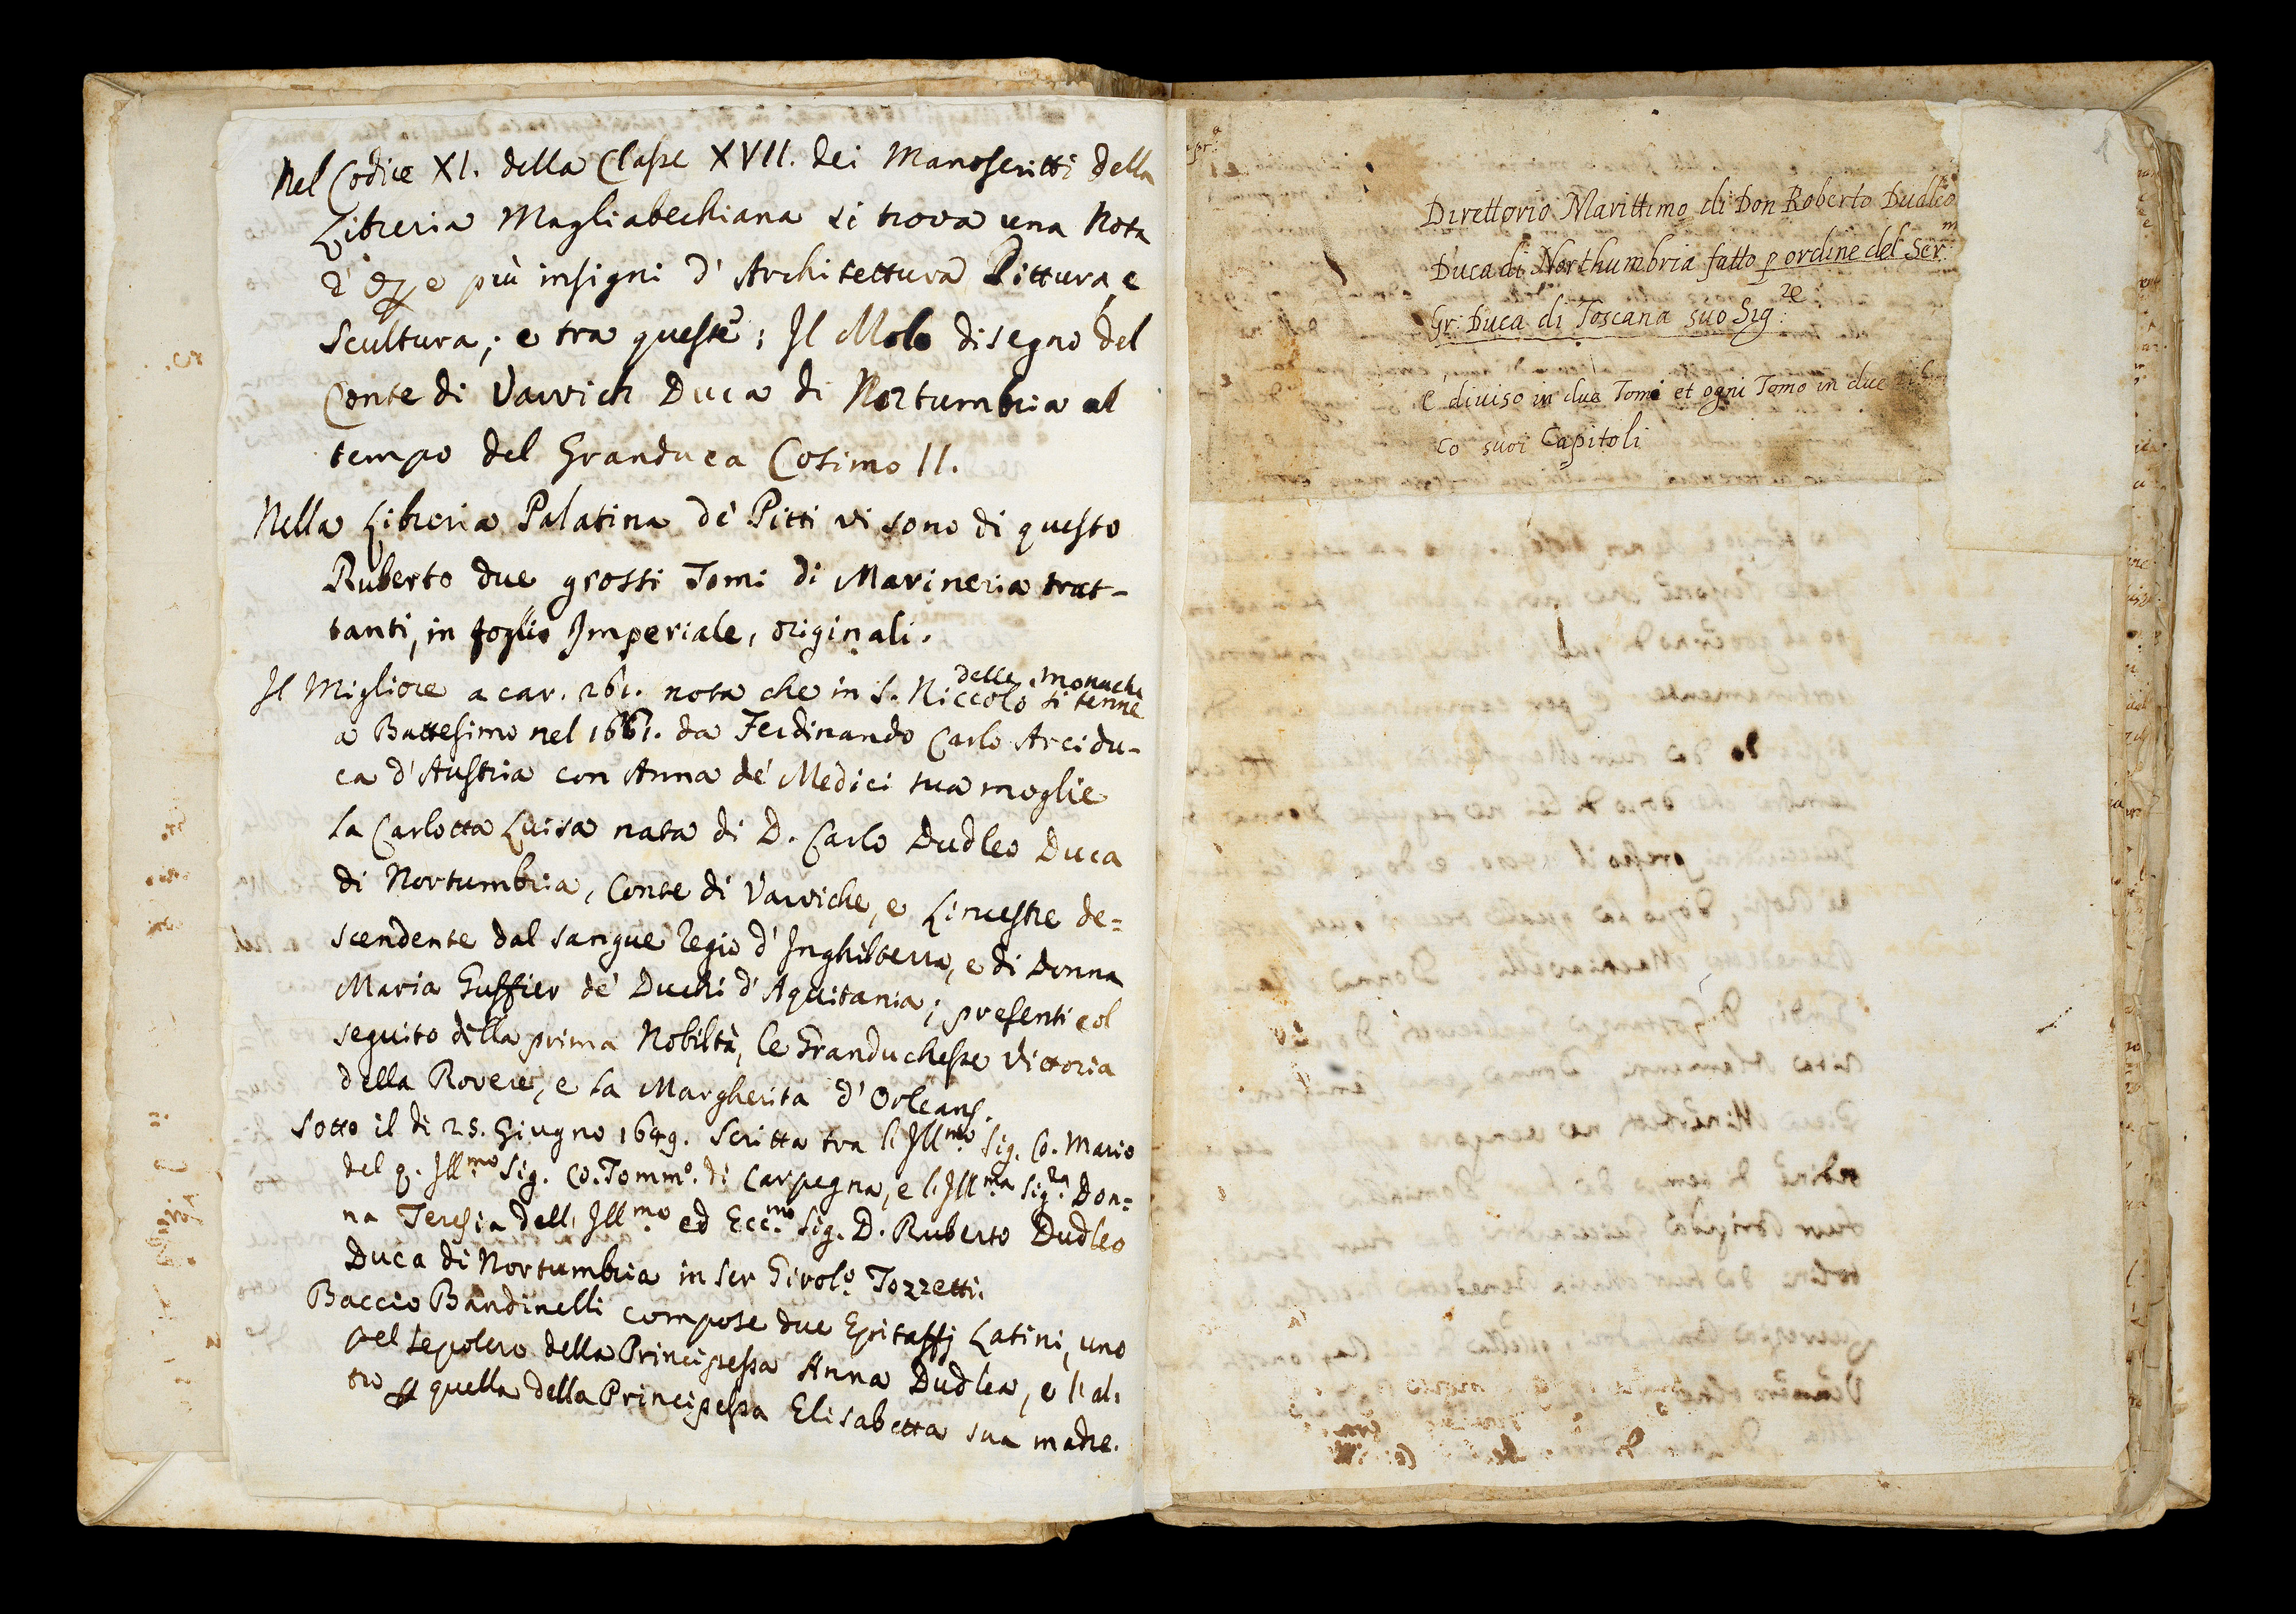 Nel Codice XI. della Classe XVII. dei Manoscritti della
Libreria Magliabechiana si trova una Nota
più insigni d'Architettura Pittura, e
Scultura; e tra queste: Il Molo disegno del
Conte di Varvich Duca di Nortumbria al
tempo del Granduca Cosimo II.
Nella Libreria Palatina de' Pitti vi sono di questo
Ruberto due grossi Tomi di Marineria trat-
tanti, in foglio Imperiale, originali.
Il Migliore a car. 261. nota che in S. Niccolò delle Monache si tenne
a Battesimo nel 1661. da Ferdinando Carlo Arcidu-
ca d'Austria con Anna de' Medici sua moglie
la Carlotta Luisa nata di D. Carlo Dudleo Duca
di Nortumbria, Conte di Varviche, e Lincestre de=
scendente dal sangue Regio d'Inghilterra, e di Donna
Maria Guffier de' Duchi d'Aquitania; presenti col
seguito della prima Nobiltà, le Granduchesse Vittoria
della Rovere, e la Margherita d'Orleans.
Sotto il dì 25. Giugno 1649. Scritta tra l'Ill.mo Sig. Co. Mario
del q. Ill.mo Sig. Co. Tomm.o di Carpegna, e l'Ill.ma Sig.ra Don=
na Teresia dell'Ill.mo ed Ecc.mo Sig. D. Ruberto Dudleo
Duca di Nortumbria in Ser Girol.o Tozzetti.
Baccio Bandinelli compose due Epitaffj Latini, uno
pel sepolcro della Principessa Anna Dudlea, e l'al-
tro p quella della Principessa Elisabetta sua madre.
1
Direttorio Marittimo di Don Roberto Dudleo
Duca di Northumbria fatto p ordine del Ser.m
Gr: Duca di Toscana suo Sig.re
È diviso in due Tomi et ogni Tomo in due
co suoi Capitoli